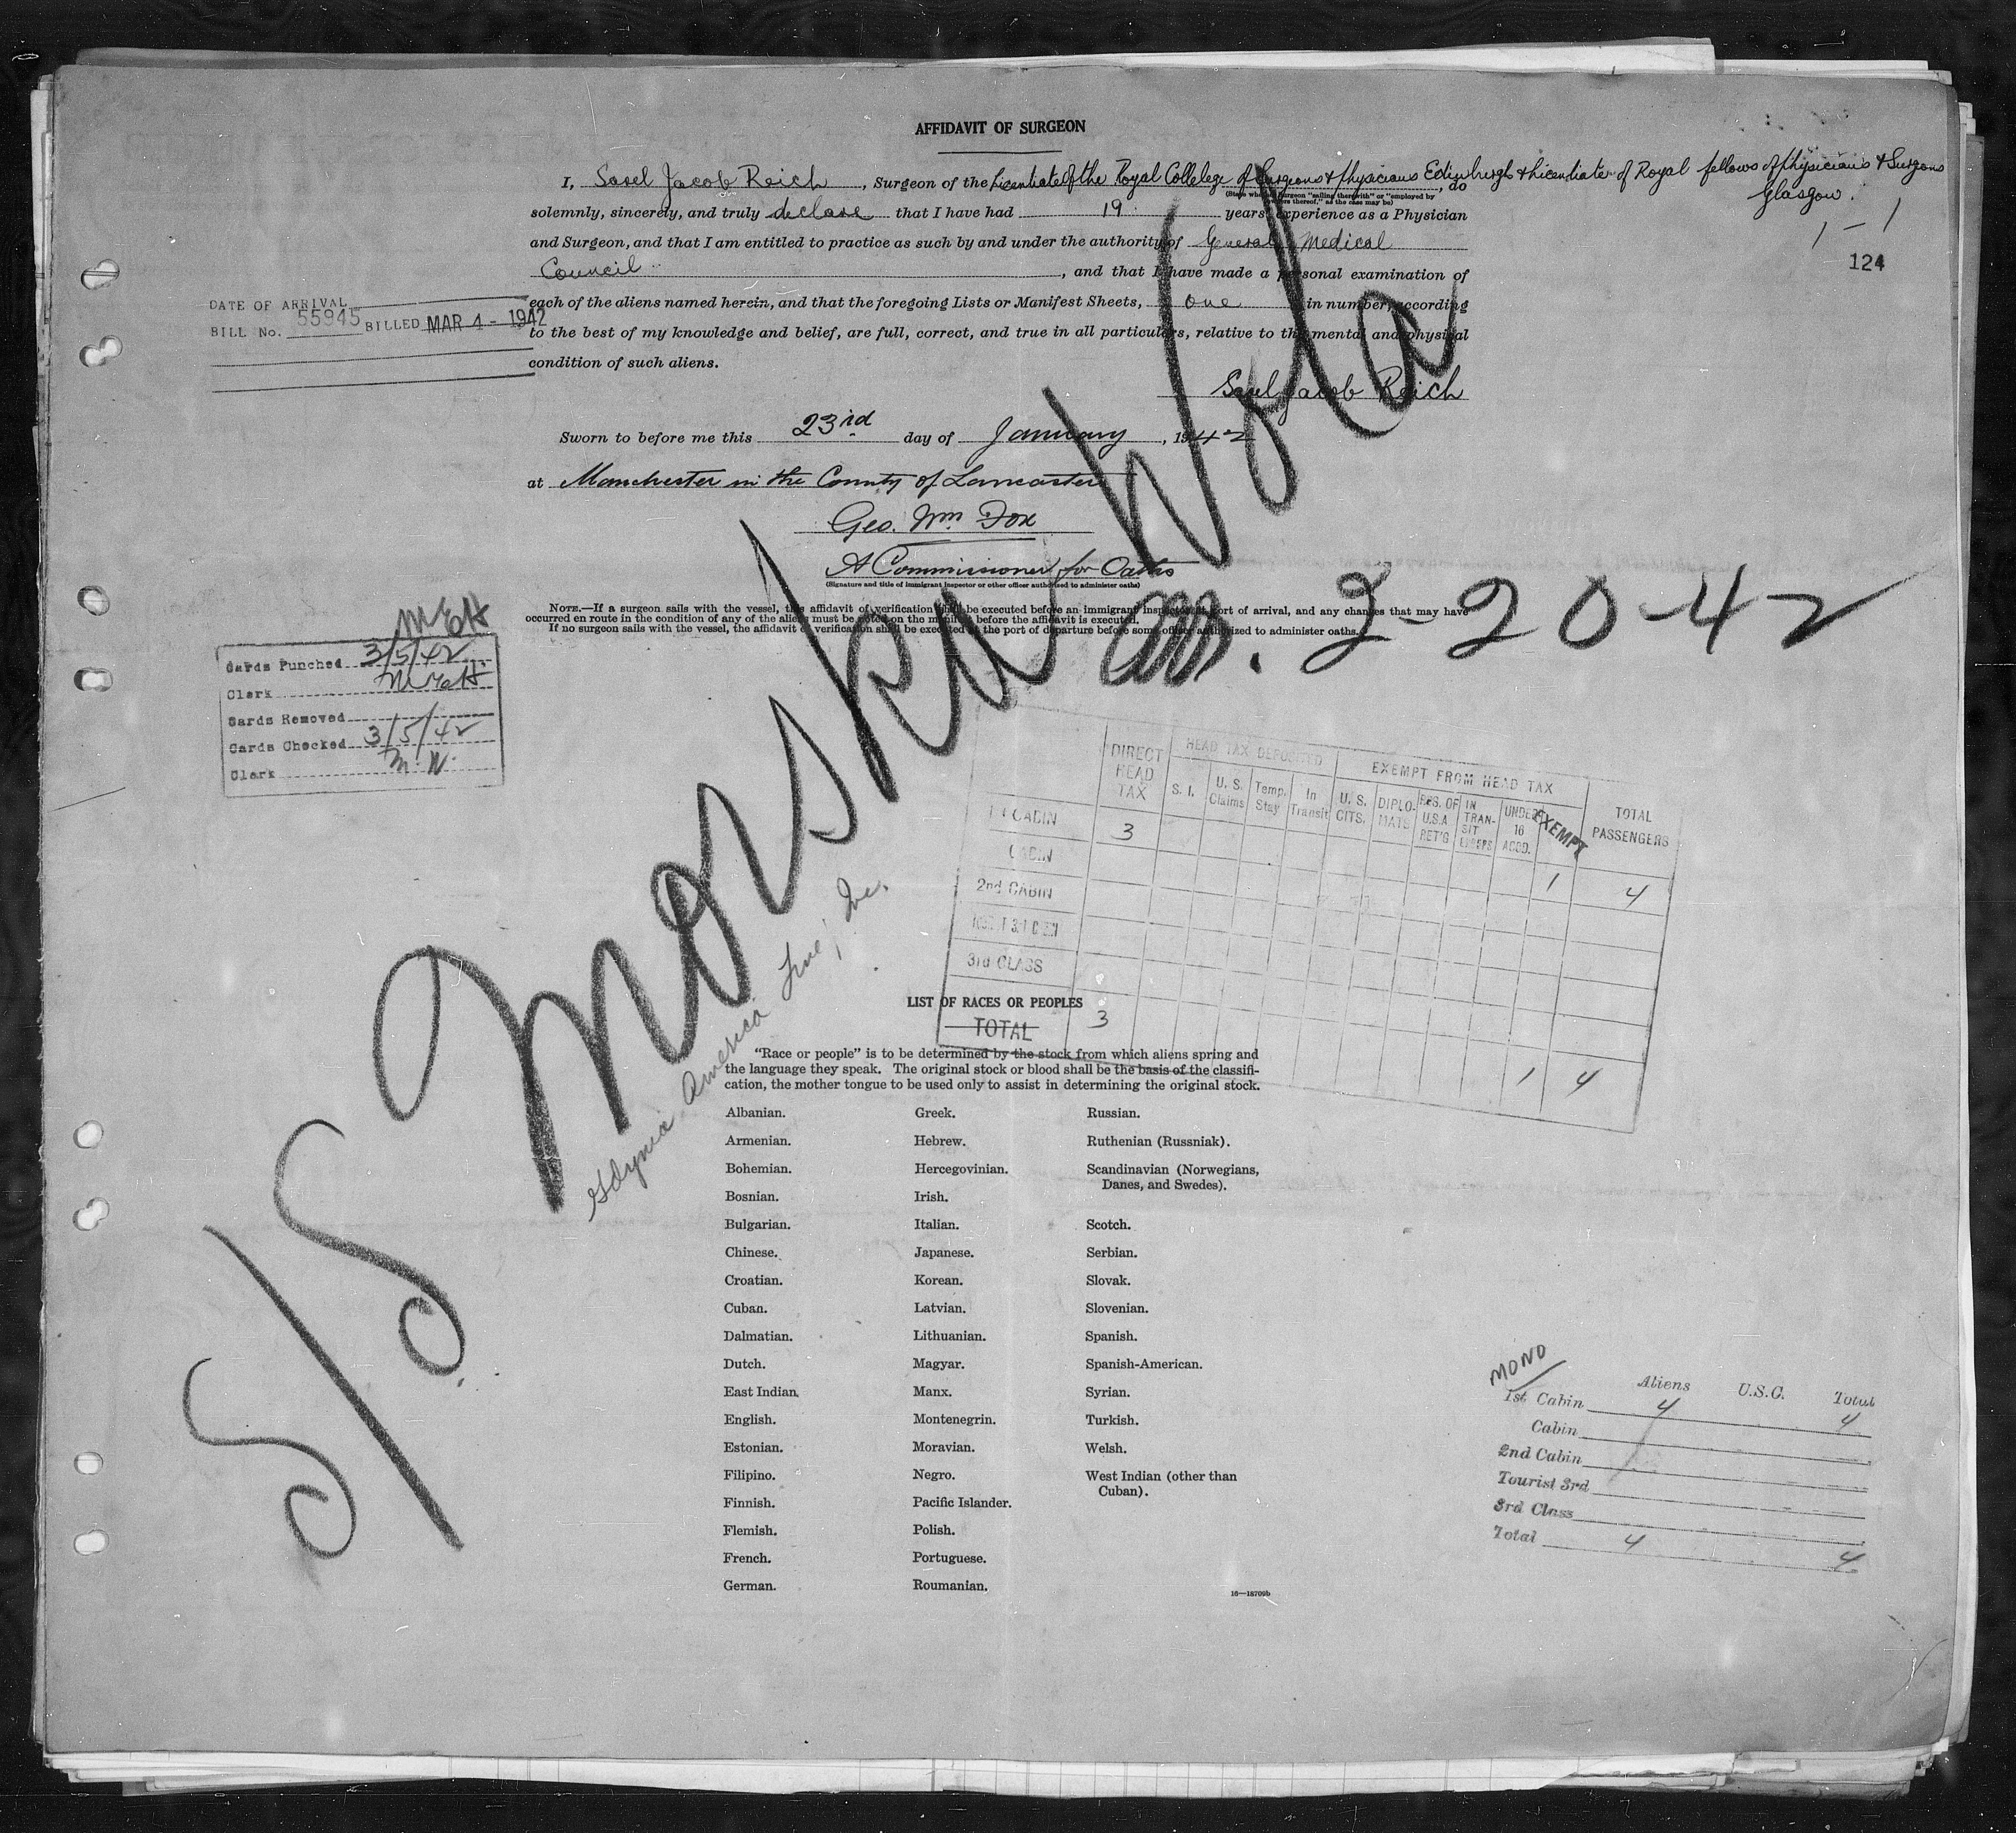 AFFIDAVIT OF SURGEON
I, Saul Jacob Reich, Surgeon of the Licentiate of the Royal Collelege of Surgeons & Physicians Edinburgh & Licentiate of Royal fellows of Physicians & Surgeons
Glasgow.
, do
(State whether Surgeon "sailing therewith" or "employed by
owners thereof," as the case may be)
solemnly, sincerely, and truly declare that I have had 19 years' experience as a Physician
and Surgeon, and that I am entitled to practice as such by and under the authority of General Medical
Council, and that I have made a personal examination of
each of the aliens named herein, and that the foregoing Lists or Manifest Sheets, one in number, according
to the best of my knowledge and belief, are full, correct, and true in all particulars, relative to the mental and physical
condition of such aliens.
1-1
124
DATE OF ARRIVAL
BILL No. 55945 BILLED MAR 4 - 1942
Saul Jacob Reich
Sworn to before me this 23rd day of January, 1942
at Manchester in the County of Lancaster
Geo. Wm. Fox
A Commissioner for Oaths
(Signature and title of immigrant inspector or other officer authorized to administer oaths)
NOTE.—If a surgeon sails with the vessel, this affidavit of verification shall be executed before an immigrant inspector at port of arrival, and any changes that may have
occurred en route in the condition of any of the aliens must be noted on the manifest before the affidavit is executed.
If no surgeon sails with the vessel, the affidavit of verification shall be executed at the port of departure before some officer authorized to administer oaths.
S/S Morska Wola
arr. 2-20-42
Gdynia America Line, Inc.
MEH
Cards Punched 3/5/42
Clerk MEH
Cards Removed
Cards Checked 3/5/42
Clerk M.W.
DIRECT HEAD TAX
HEAD TAX DEPOSITED
EXEMPT FROM HEAD TAX
TOTAL PASSENGERS
S. I.
U. S. Claims
Temp. Stay
In Transit
U. S. CITS.
DIPLO- MATS
RES. OF U.S.A. RET'G
IN TRAN- SIT
UNDER 16 ACCD.
EXEMPT
CABIN 3
CABIN 1 4
2nd CABIN
3rd CLASS
TOTAL 3 1 4
LIST OF RACES OR PEOPLES
"Race or people" is to be determined by the stock from which aliens spring and
the language they speak. The original stock or blood shall be the basis of the classifi-
cation, the mother tongue to be used only to assist in determining the original stock.
Albanian.
Armenian.
Bohemian.
Bosnian.
Bulgarian.
Chinese.
Croatian.
Cuban.
Dalmatian.
Dutch.
East Indian.
English.
Estonian.
Filipino.
Finnish.
Flemish.
French.
German.
Greek.
Hebrew.
Hercegovinian.
Irish.
Italian.
Japanese.
Korean.
Latvian.
Lithuanian.
Magyar.
Manx.
Montenegrin.
Moravian.
Negro.
Pacific Islander.
Polish.
Portuguese.
Roumanian.
Russian.
Ruthenian (Russniak).
Scandinavian (Norwegians,
Danes, and Swedes).
Scotch.
Serbian.
Slovak.
Slovenian.
Spanish.
Spanish-American.
Syrian.
Turkish.
Welsh.
West Indian (other than
Cuban).
16—18709b
MONO
Aliens U.S.C. Total
1st Cabin 4 4
Cabin
2nd Cabin
Tourist 3rd
3rd Class
Total 4 4